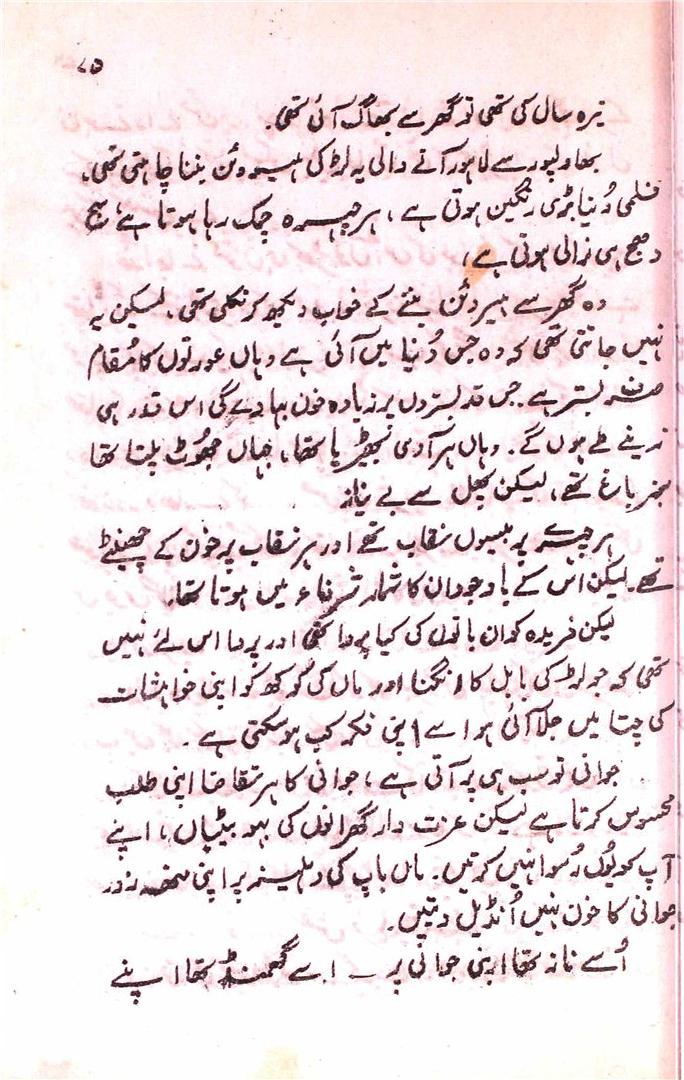 ۷۵
تیرہ سال کی تھی تو گھر سے بھاگ آئی تھی۔
بھاولپور سے لاہور آنے والی یہ لڑکی ہیروئن بننا چاہتی تھی۔
فلمی دُنیا بڑی رنگین ہوتی ہے، ہر چہرہ چمک رہا ہوتا ہے، سج
دھج ہی نرالی ہوتی ہے،
وہ گھر سے ہیروئن بننے کے خواب دیکھ کر نکلی تھی۔ لیکن یہ
نہیں جانتی تھی کہ وہ جس دُنیا میں آئی ہے وہاں عورتوں کا مُقام
صرف بستر ہے۔ جس قدر بستروں پر زیادہ خون بہا دے گی اس قدر ہی
زینے طے ہوں گے۔ وہاں ہر آدمی بھیڑیا تھا، جہاں جھُوٹ پلتا تھا
باغ تھے، لیکن پھل سے بے نیاز
ہر چہرے پر بیسیوں نقاب تھے اور ہر نقاب پر خون کے چھینٹے
تھے۔ لیکن اس کے باوجود ان کا شمار شرفاء میں ہوتا تھا۔
لیکن فریدہ کو ان باتوں کی کیا پروا تھی اور پروا اس لئے نہیں
تھی کہ جو لڑکی بابل کا انگنا اور ماں کی کوکھ کو اپنی خواہشات
کی چتا میں جلا آئی ہو اسے اپنی فکر کب ہو سکتی ہے۔
جوانی تو سب ہی پر آتی ہے، جوانی کا ہر تقاضا اپنی طلب
محسوس کرتا ہے لیکن عزت دار گھرانوں کی بہو بیٹیاں، اپنے
آپ کو یُوں رُسوا نہیں کرتیں۔ ماں باپ کی دہلیز پر اپنی منہ زور
جوانی کا خون نہیں اُنڈیل دیتیں۔
اُسے ناز تھا اپنی جوانی پر ــ اسے گھمنڈ تھا اپنے